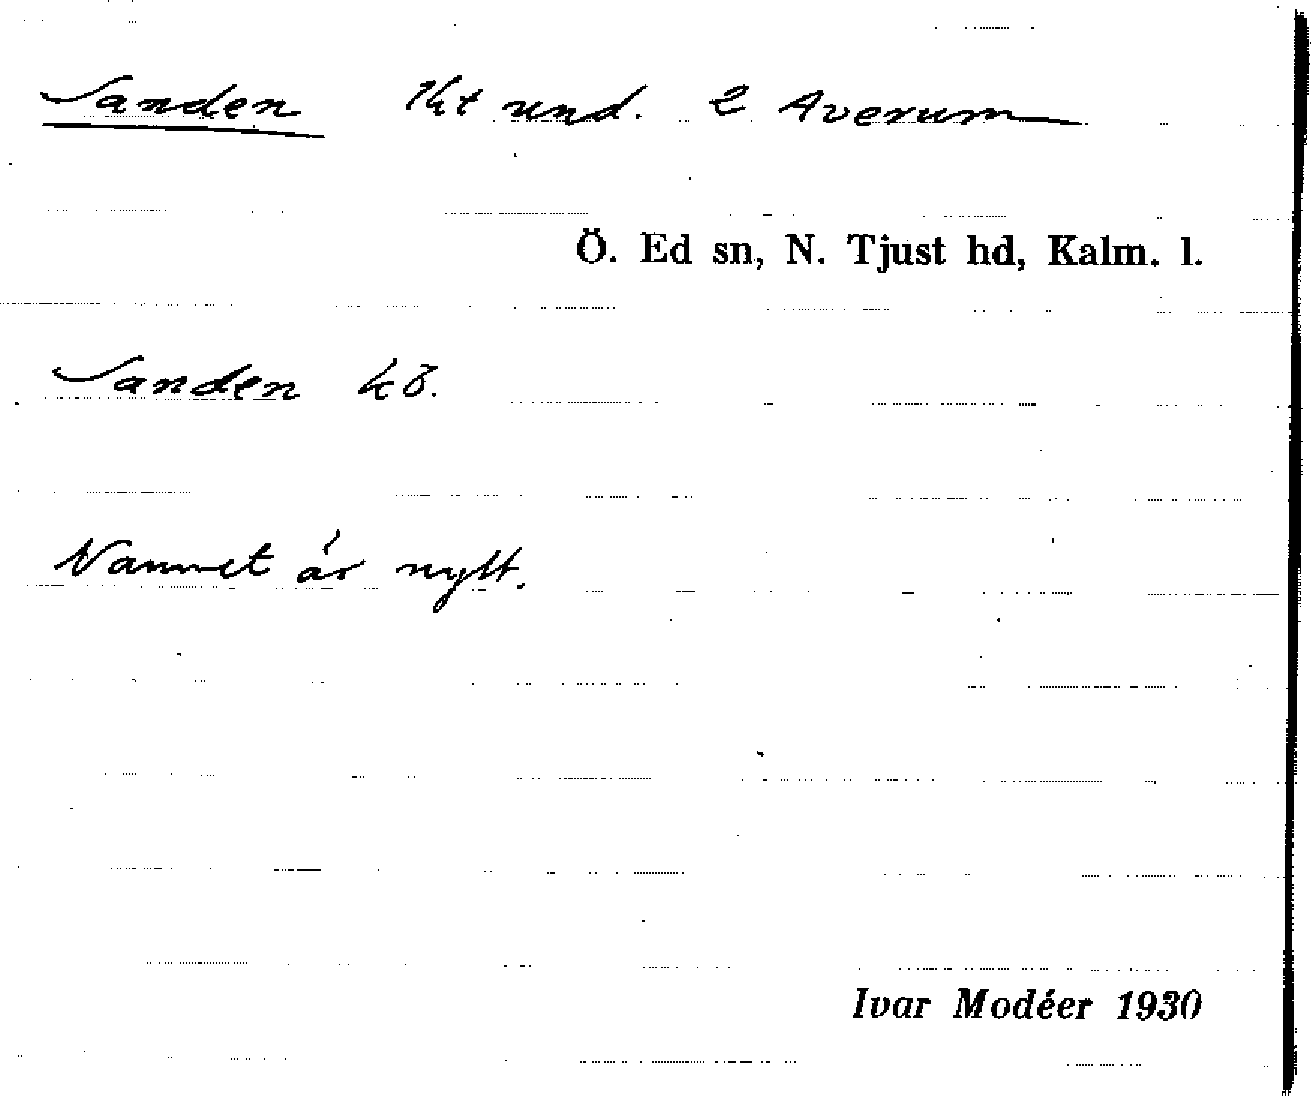 Sanden lht und. 2 Averum
Ö. Ed sn, N. Tjust hd, Kalm. l.
Sanden kö.
Namnet är nytt.
Ivar Modéer 1930